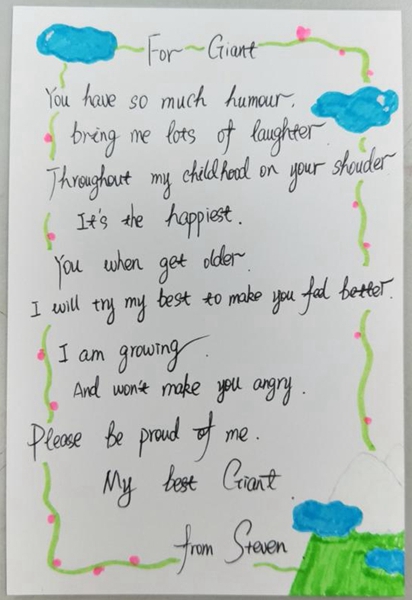 For Giant
You have so much humour.
bring me lots of laughter
Throughout my childhood on your shouder
It's the happiest.
You when get older.
I will try my best to make you feel better.
I am growing.
And won't make you angry.
Please be proud of me.
My best Giant.
from Steven